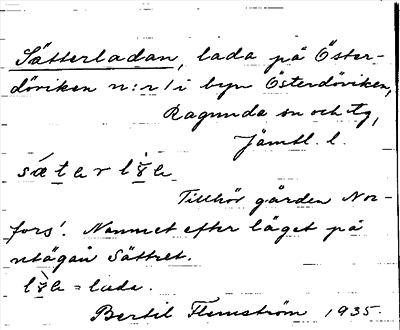 Sätterladan, lada på Öster-
döviken n:r 1 i byn Österdöviken,
Ragunda sn och tg,
Jämtl. l.
Tillhör gården Nor-
fors'. Namnet efter läget på
utägan Sättret.
= lada.
Bertil Flemström 1935.